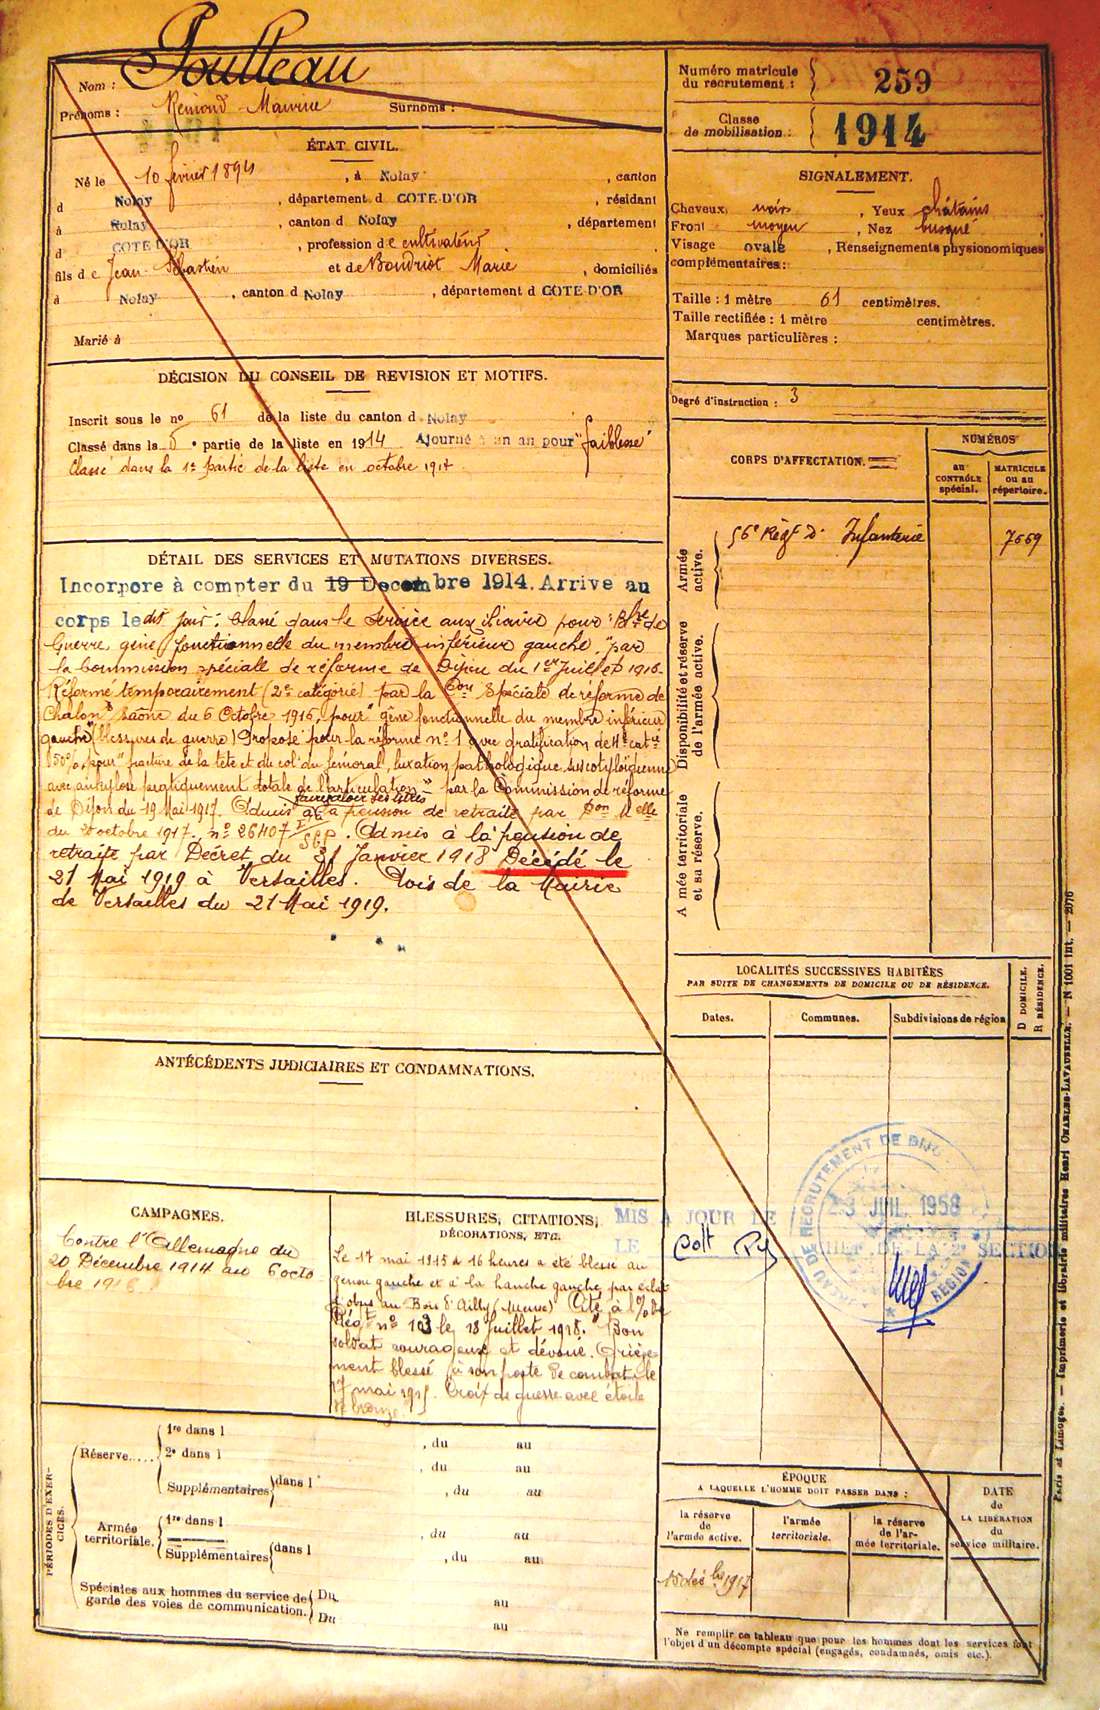 Nom : Poulleau
Prénoms : Rémond Maurice Surnoms :
Numéro matricule du recrutement : 259
Classe de mobilisation : 1914
ÉTAT CIVIL.
Né le 10 février 1894, à Nolay, canton
d Nolay, département d COTE D'OR, résidant
à Nolay, canton d Nolay, département
d COTE D'OR, profession de cultivateur
fils de Jean Sébastien et de Boudriot Marie, domiciliés
à Nolay, canton d Nolay, département d COTE D'OR
Marié à
SIGNALEMENT.
Cheveux noirs, Yeux châtains
Front moyen, Nez busqué
Visage ovale, Renseignements physionomiques
complémentaires :
Taille : 1 mètre 61 centimètres.
Taille rectifiée : 1 mètre centimètres.
Marques particulières :
Degré d'instruction : 3
DÉCISION DU CONSEIL DE REVISION ET MOTIFS.
Inscrit sous le no 61 de la liste du canton d Nolay
Classé dans la 5e partie de la liste en 1914 Ajourné à un an pour "faiblesse"
Classé dans la 1e partie de la liste en octobre 1914
CORPS D'AFFECTATION.
NUMÉROS
au CONTRÔLE spécial.
MATRICULE ou au répertoire.
Armée active.
56e Régt d'Infanterie 7669
Disponibilité et réserve de l'armée active.
A mée territoriale et sa réserve.
DÉTAIL DES SERVICES ET MUTATIONS DIVERSES.
Incorpore à compter du 19 Decembre 1914. Arrive au
corps ledit jour. Classé dans le service auxiliaire pour : Bre de
Guerre, gêne fonctionnelle du membre inférieur gauche", par
la Commission spéciale de réforme de Dijon du 1er Juillet 1916.
Réformé temporairement (2e catégorie) par la Con Spéciale de réforme de
Chalon s Saône du 6 Octobre 1916, pour "gêne fonctionnelle du membre inférieur
gauche" (blessures de guerre) Proposé pour la réforme no 1 avec gratification de 4e catie
50% pour "fracture de la tête et du col du fémoral, luxation pathologique suscotyloïdienne
avec ankylose pratiquement totale de l'articulation" par la Commission de réforme
de Dijon du 19 Mai 1917. Admis à la pension de retraite par Don Melle
du 20 octobre 1917. no 26407 Admis à la pension de
retraite par Décret du 31 Janvier 1918 Décédé le
21 Mai 1919 à Versailles. Avis de la Mairie
de Versailles du 21 Mai 1919.
LOCALITÉS SUCCESSIVES HABITÉES
PAR SUITE DE CHANGEMENTS DE DOMICILE OU DE RÉSIDENCE.
Dates. Communes. Subdivisions de région
D DOMICILE.
R RÉSIDENCE.
ANTÉCÉDENTS JUDICIAIRES ET CONDAMNATIONS.
CAMPAGNES.
Contre l'Allemagne du
20 Décembre 1914 au 6 octo
bre 1916
BLESSURES, CITATIONS,
DÉCORATIONS, ETC.
Le 17 mai 1915 à 16 heures a été blessé au
genou gauche et à la hanche gauche, par éclat
d'obus au Bois d'Ailly (Meuse) Cité à l'o/ du
Régt no 103 le 18 Juillet 1918. "Bon
soldat courageux et dévoué. Griève-
ment blessé à son poste de combat le
17 mai 1915. Croix de guerre avec étoile
de bronze.
MIS A JOUR LE
LE
CHEF DE LA 2e SECTION
BUREAU DE RECRUTEMENT DE DIJON
23 JUIL. 1958
REGION
PÉRIODES D'EXERCICES.
Réserve..... 1re dans l , du au
2e dans l , du au
Supplémentaires dans l , du au
Armée territoriale. 1re dans l , du au
Supplémentaires dans l , du au
Spéciales aux hommes du service de garde des voies de communication. Du au
Du au
ÉPOQUE
A LAQUELLE L'HOMME DOIT PASSER DANS :
la réserve de l'armée active.
l'armée territoriale.
la réserve de l'armée territoriale.
DATE de LA LIBÉRATION du service militaire.
15 déc bre 1917
Ne remplir ce tableau que pour les hommes dont les services font
l'objet d'un décompte spécial (engagés, condamnés, omis etc.).
Paris et Limoges. — Imprimerie et librairie militaires Henri CHARLES-LAVAUZELLE. — N 1001 int. — 2076